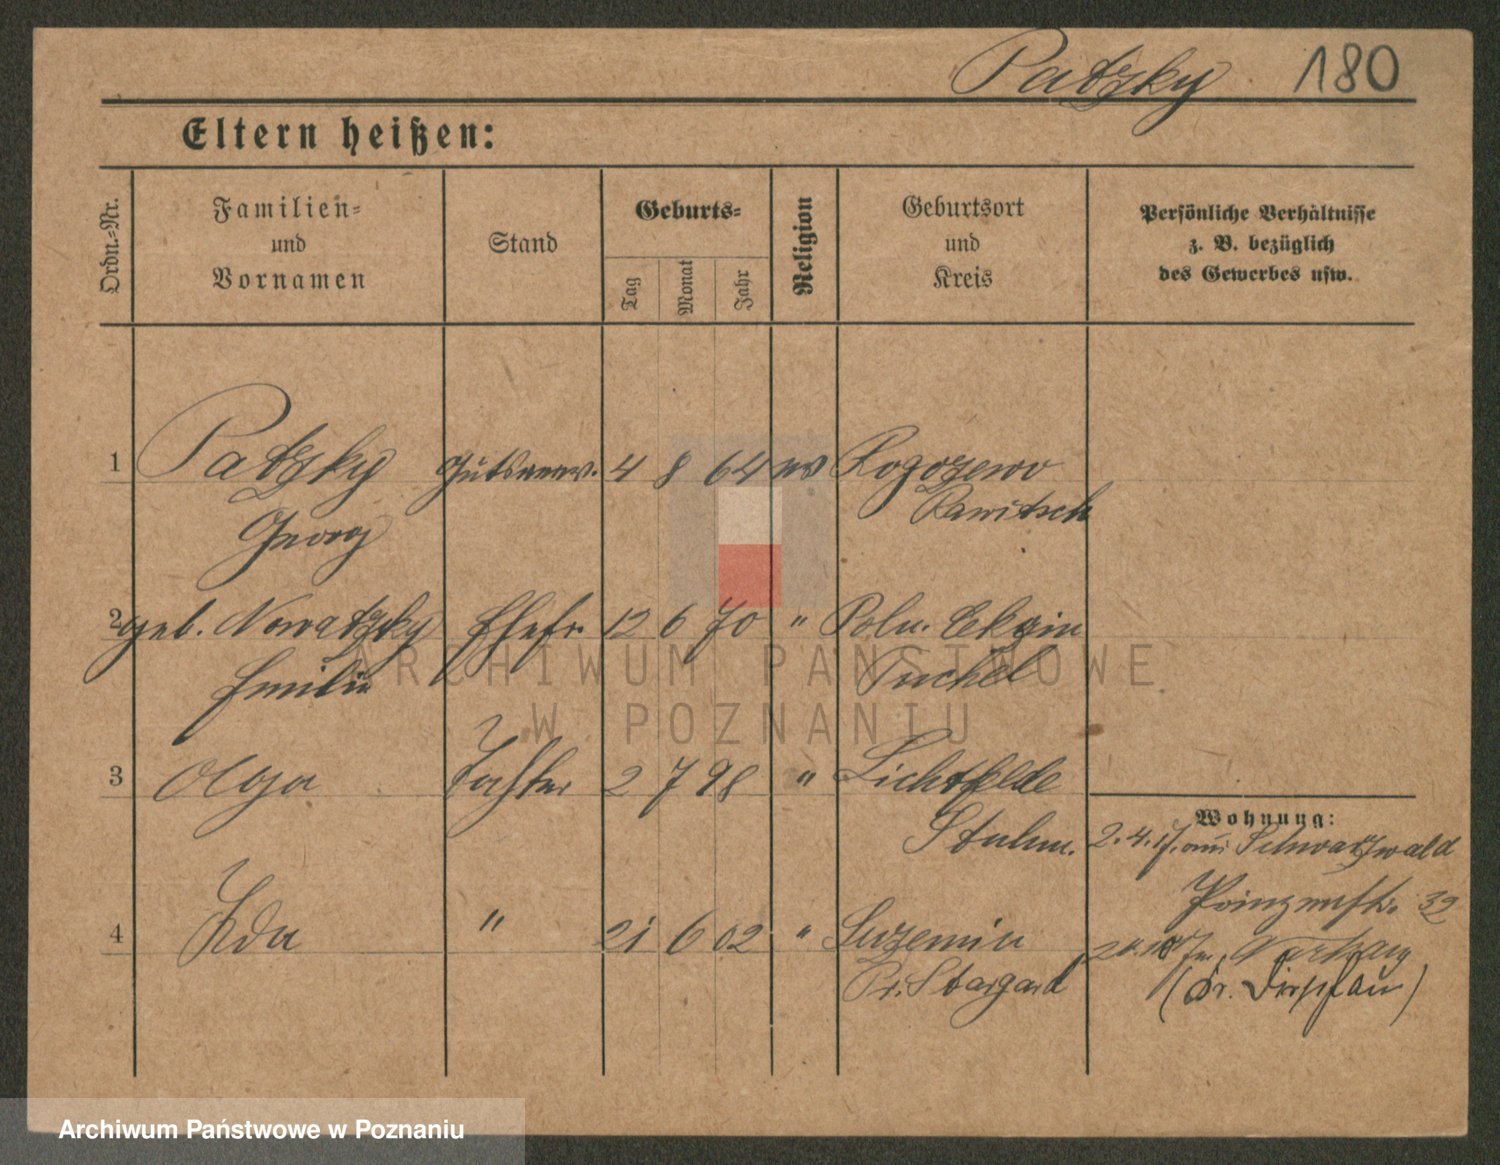 Patzky 180
Eltern heißen:
Ordn.-Nr.
Familien-
und
Vornamen
Stand
Geburts-
Tag
Monat
Jahr
Religion
Geburtsort
und
Kreis
Persönliche Verhältnisse
z. B. bezüglich
des Gewerbes usw.
1 Patzky Gutsverw. 4 8 64 ev Rogozewo
Georg Rawitsch
2 geb. Nowatzky Ehefr. 12 6 70 " Poln.
Emilie Tuchel
3 Olga Tochter 2 7 98 " Lichtfelde
Stuhm.
Wohnung:
2.4.17. aus Schwarzwald
Prinzenstr. 32
4 Ida " 21 6 02 " Suzemin
Pr. Stargard
(Kr. Dirschau)
ARCHIWUM PAŃSTWOWE
W POZNANIU
Archiwum Państwowe w Poznaniu